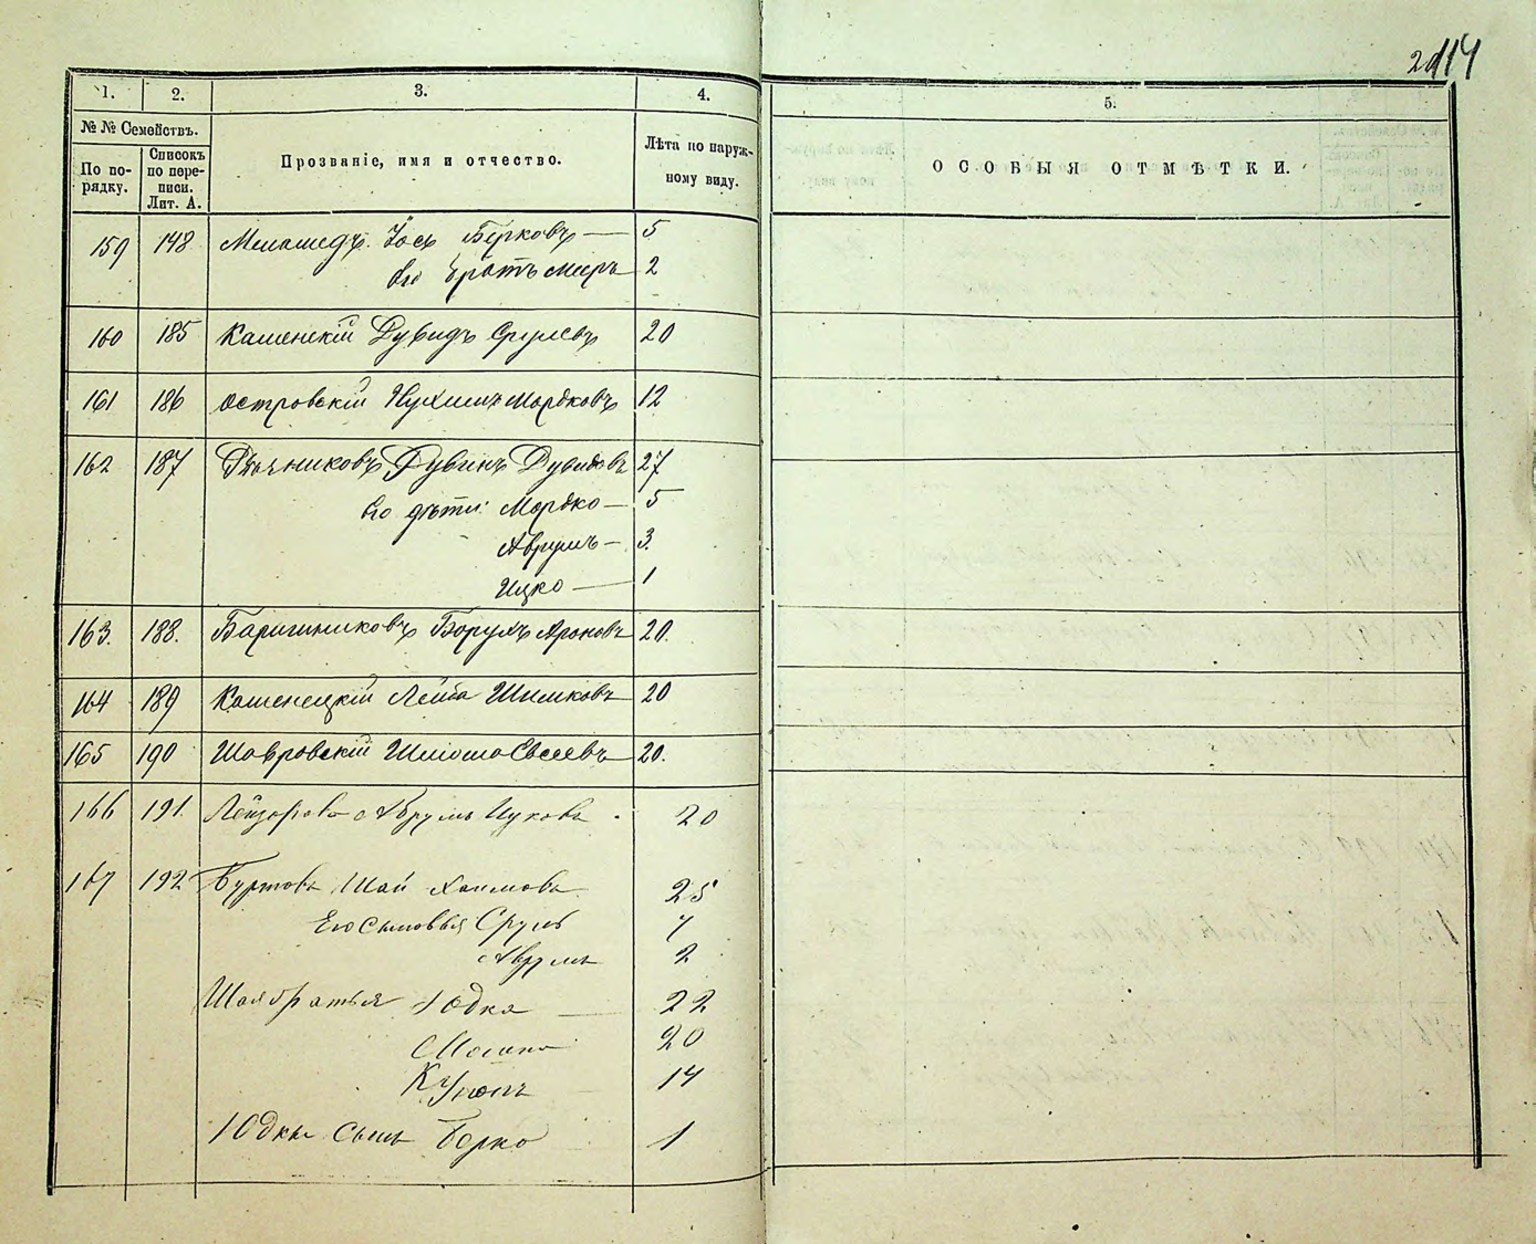 114
1.
2.
3.
4.
5.
№ № Семействъ.
По по-
рядку.
Списокъ
по пере-
писи.
Лит. А.
Прозваніе, имя и отчество.
Лѣта по наруж-
ному виду.
ОСОБЫЯ ОТМѢТКИ.
159 148 Меламедъ Іось Берковъ — 5
его братъ Меиръ 2
160 185 Каменскій Дувидъ Срулевъ 20
161 186 Островскій Нухимъ Мордковъ 12
162 187 Рувинъ Дувидовъ 27
его дѣти: Мордко — 5
Аврумъ — 3.
Ицко — 1
163. 188. Борухъ Ароновъ 20.
164 189 Каменецкій Лейба Шимковъ 20
165 190 Шавровскій Шліома Евсеевъ 20.
166 191. Аврумъ Ицковъ 20
167 192 Буртовъ Шая Хаимовъ 25
Его сыновья Сруль 7
Аврумъ 2
Шаи братья Юдка — 22
Мошко 20
14
Юдки сынъ Берко 1